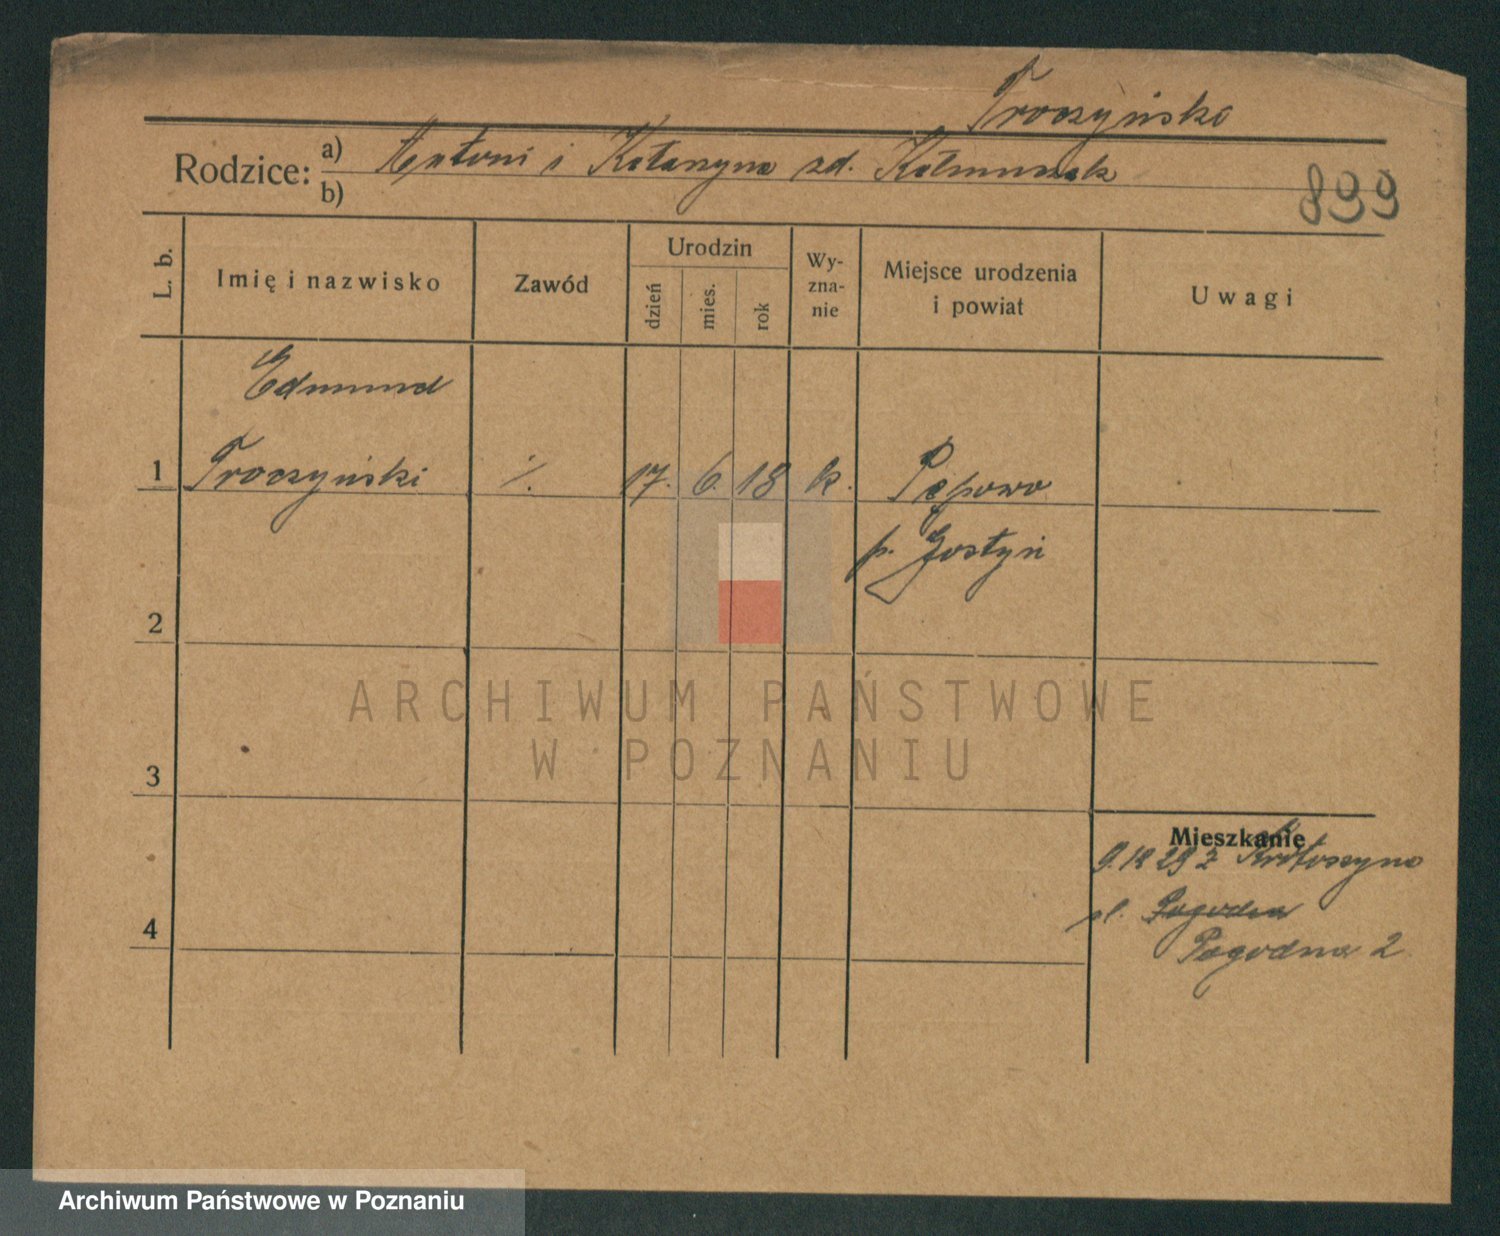 Troczyńska
Rodzice: a) Antoni i Katarzyna zd. Kałmuczak
b)
899
L. b.
Imię i nazwisko
Zawód
Urodzin
dzień
mies.
rok
Wy-
zna-
nie
Miejsce urodzenia
i powiat
Uwagi
Edmund
1 Troczyński ·/. 17. 6. 18 k. Pępowo
p. Gostyń
2
3
4
Mieszkanie
9.12 29 z Krotoszyna
ul. Pogodna
Pogodna 2
ARCHIWUM PAŃSTWOWE
W POZNANIU
Archiwum Państwowe w Poznaniu